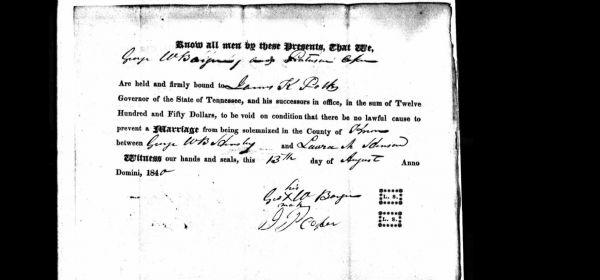 Know all men by these Presents, That We,
George W and
Are held and firmly bound to James K Polk
Governor of the State of Tennessee, and his successors in office, in the sum of Twelve
Hundred and Fifty Dollars, to be void on condition that there be no lawful cause to
prevent a Marriage from being solemnized in the County of
between George W B and Laura M
Witness our hands and seals, this 13th day of August Anno
Domini, 1840
his
Geo X W
mark
L. S.
L. S.